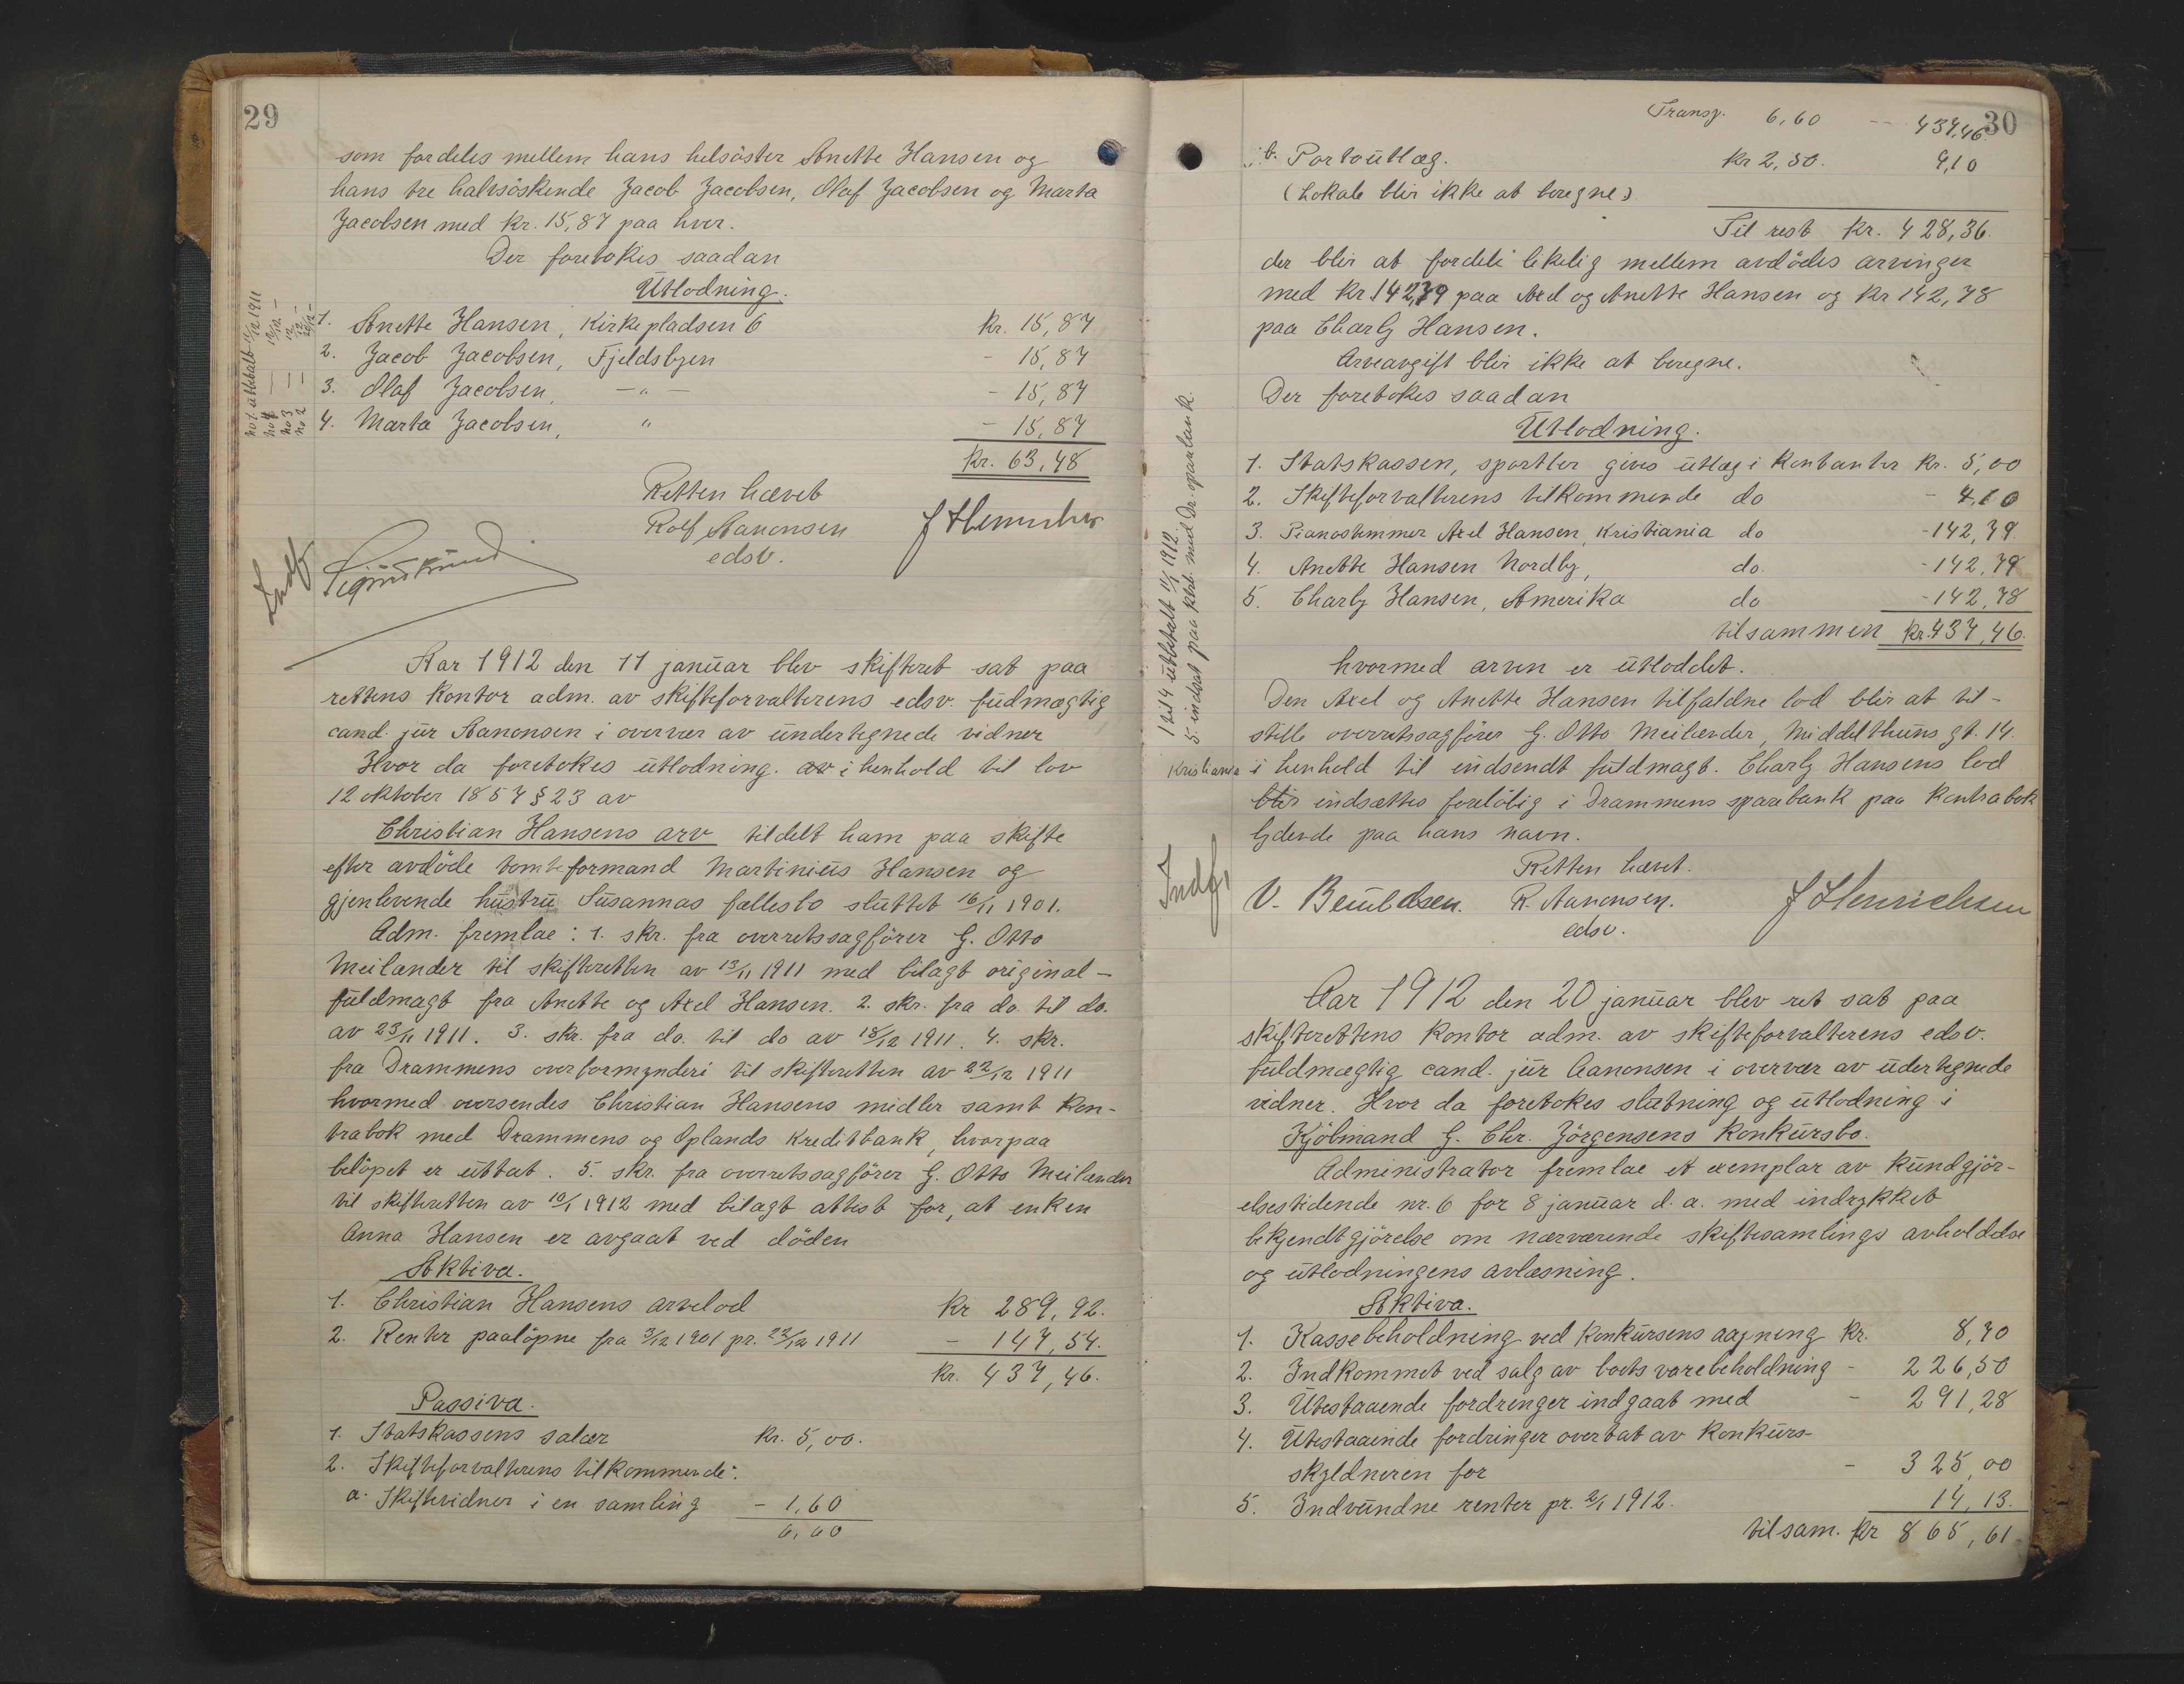 29
som fordeles mellem hans helsöster Anette Hansen og
hans tre halvsöskende Jacob Jacobsen, Olaf Jacobsen og Marta
Jacobsen med kr. 15,87 paa hver.
Der foretokes saadan
Utlodning.
1. Anette Hansen, Kirkepladsen 6 Kr. 15,87
2. Jacob Jacobsen, Fjeldsbyen - 15,87
3. Olaf Jacobsen, -"- - 15,87
4. Marta Jacobsen, " - 15,87
Kr. 63,48
Retten hævet
Rolf Aanonsen
edsv.
Indf
Aar 1912 den 11 januar blev skifteret sat paa
rettens kontor adm. av skifteforvalterens edsv. fudmægtig
cand. jur Aanonsen i overvær av undertegnede vidner
Hvor da foretokes utlodning. av i henhold til lov
12 oktober 1857 § 23 av
Christian Hansens arv tildelt ham paa skifte
efter avdöde tomteformand Martinius Hansen og
gjenlevende hustru Susannas fællesbo sluttet 16/11 1901.
Adm. fremlae: 1. skr. fra overretssagförer G. Otto
Meilænder til skifteretten av 13/11 1911 med bilagt original-
fuldmagt fra Anette og Axel Hansen. 2. skr. fra do. til do.
av 23/11 1911. 3. skr. fra do. til do av 18/12 1911. 4. skr.
fra Drammens overformynderi til skifteretten av 22/12 1911
hvormed oversendes Christian Hansens midler samt kon-
trabok med Drammens og Oplands Kreditbank, hvorpaa
belöpet er uttat. 5. skr. fra overretssagförer G. Otto Meilænder
til skifteretten av 10/1 1912 med bilagt attest for, at enken
Anna Hansen er avgaat ved döden
Aktiva.
1. Christian Hansens arvelod Kr 289,92.
2. Renter paalöpne fra 3/12 1901 pr. 22/12 1911 - 147,54.
Kr. 437,46.
Passiva.
1. Statskassens salær Kr. 5,00.
2. Skifteforvalterens tilkommende:
a. Skiftevidner i en samling - 1,60
6,60
30
Transp. 6,60 -- 437,46
b. Portoutlæg. Kr 2,50. 9,10
(Lokale blir ikke at beregne)
Til rest Kr. 428,36.
der blir at fordele likelig mellem avdödes arvinger
med Kr 142,79 paa Axel og Anette Hansen og Kr 142,78
paa Charly Hansen.
Arveavgift blir ikke at beregne.
Der foretokes saadan
Utlodning.
1. Statskassen, sportler gives utlæg i kontanter Kr. 5,00
2. Skifteforvalterens tilkommende do - 4,10
3. Pianostemmer Axel Hansen, Kristiania do - 142,79.
4. Anette Hansen Nordby, do. - 142,79
5. Charly Hansen, Amerika do - 142,78
tilsammen Kr. 437,46.
hvormed arven er utloddet.
Den Axel og Anette Hansen tilfaldne lod blir at til-
stille overretssagförer G. Otto Meilænder, Middelthuns gt. 14.
Kristiania i henhold til indsendt fuldmagt. Charly Hansens lod
blir indsættes foreløbig i Drammens sparebank paa kontrabok
lydende paa hans navn.
Retten hævet.
R. Aanonsen.
edsv.
J Henrichsen
Indf,
1 til 4 utbetalt 11/1 1912
5. indsat paa ktrb. med Dr. sparebank.
Aar 1912 den 20 januar blev ret sat paa
skifterettens kontor adm. av skifteforvalterens edsv.
fuldmægtig cand. jur Aanonsen i overvær av udertegnede
vidner. Hvor da foretokes slutning og utlodning i
Kjöbmand G. Chr. Jörgensens konkursbo.
Administrator fremlae et exemplar av kundgjör-
elsestidende nr. 6 for 8 januar d. a. med indrykket
bekjendtgjörelse om nærværende skiftesamlings avholdelse
og utlodningens avlæsning.
Aktiva.
1. Kassebeholdning ved konkursens aapning Kr. 8,70
2. Indkommet ved salg av boets varebeholdning - 226,50
3. Utestaaende fordringer indgaat med - 291,28
4. Utestaaende fordringer overtat av konkurs-
skyldneren for - 325,00
5. Indvundne renter pr. 2/1 1912. 14,13.
tilsam. Kr 865,61